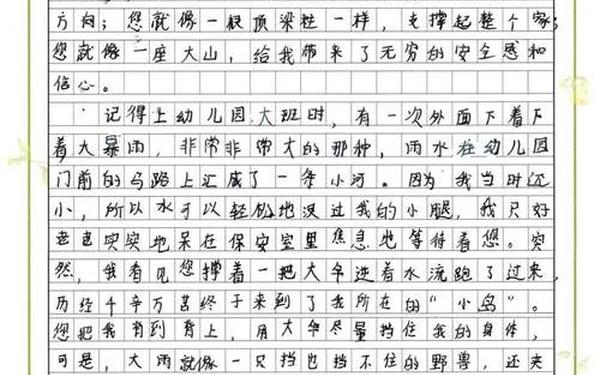 方向；您就像一根顶梁柱一样，支撑起整个家；
您就像一座大山，给我带来了无穷的安全感和
信心。
记得上幼儿园大班时，有一次外面下着下
着大暴雨，非常非常大的那种，雨水在幼儿园
门前的马路上汇成了一条小河。因为我当时还
小，所以水可以轻松地浸过我的小腿，我只好
老老实实地呆在保安室里焦急地等待着您。突
然，我看见您撑着一把大伞逆着水流跑了过来，
历经千辛万苦终于来到了我所在的“小岛”。
您把我背到背上，用大伞尽量挡住我的身体，
可是，大雨就像一只挡也挡不住的野兽，还夹